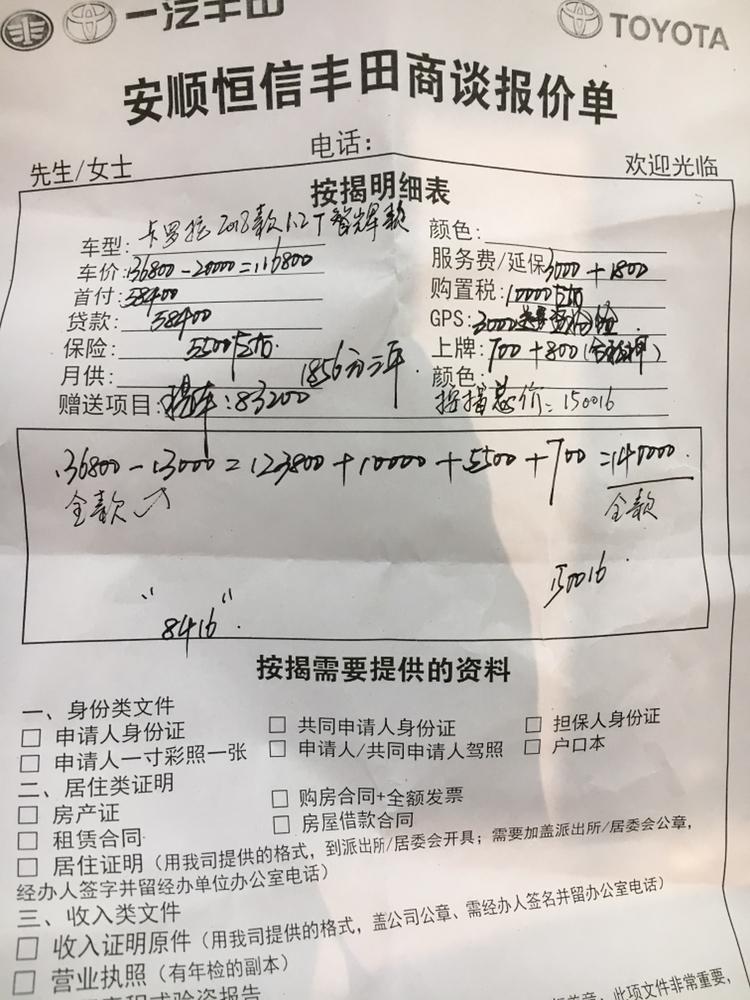 一汽丰田 TOYOTA
安顺恒信丰田商谈报价单
先生/女士 电话: 欢迎光临
按揭明细表
车型: 卡罗拉2018款1.2T 智辉款 颜色:
车价: 136800-20000=116800 服务费/延保 3000+1800
首付: 58400 购置税: 10000左右
贷款: 58400 GPS: 3000
保险: 5500左右. 上牌: 700+800
月供: 1856元三年. 颜色:
赠送项目: 提车:83200 按揭总价:150016
136800-13000=123800+10000+5500+700=140000.
全款 全款
150016.
"8416".
按揭需要提供的资料
一、身份类文件
□ 申请人身份证 □ 共同申请人身份证 □ 担保人身份证
□ 申请人一寸彩照一张 □ 申请人/共同申请人驾照 □ 户口本
二、居住类证明
□ 房产证 □ 购房合同+全额发票
□ 租赁合同 □ 房屋借款合同
□ 居住证明（用我司提供的格式，到派出所/居委会开具；需要加盖派出所/居委会公章，
经办人签字并留经办单位办公室电话）
三、收入类文件
□ 收入证明原件（用我司提供的格式，盖公司公章、需经办人签名并留办公室电话）
□ 营业执照（有年检的副本）
程或验资报告 此项文件非常重要，